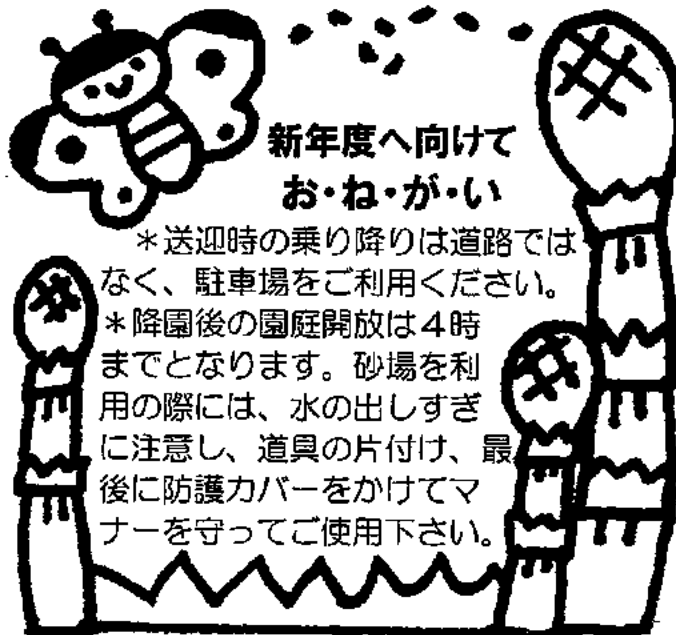 新年度へ向けて
お・ね・が・い
＊送迎時の乗り降りは道路では
なく、駐車場をご利用ください。
＊降園後の園庭開放は4時
までとなります。砂場を利
用の際には、水の出しすぎ
に注意し、道具の片付け、最
後に防護カバーをかけてマ
ナーを守ってご使用下さい。